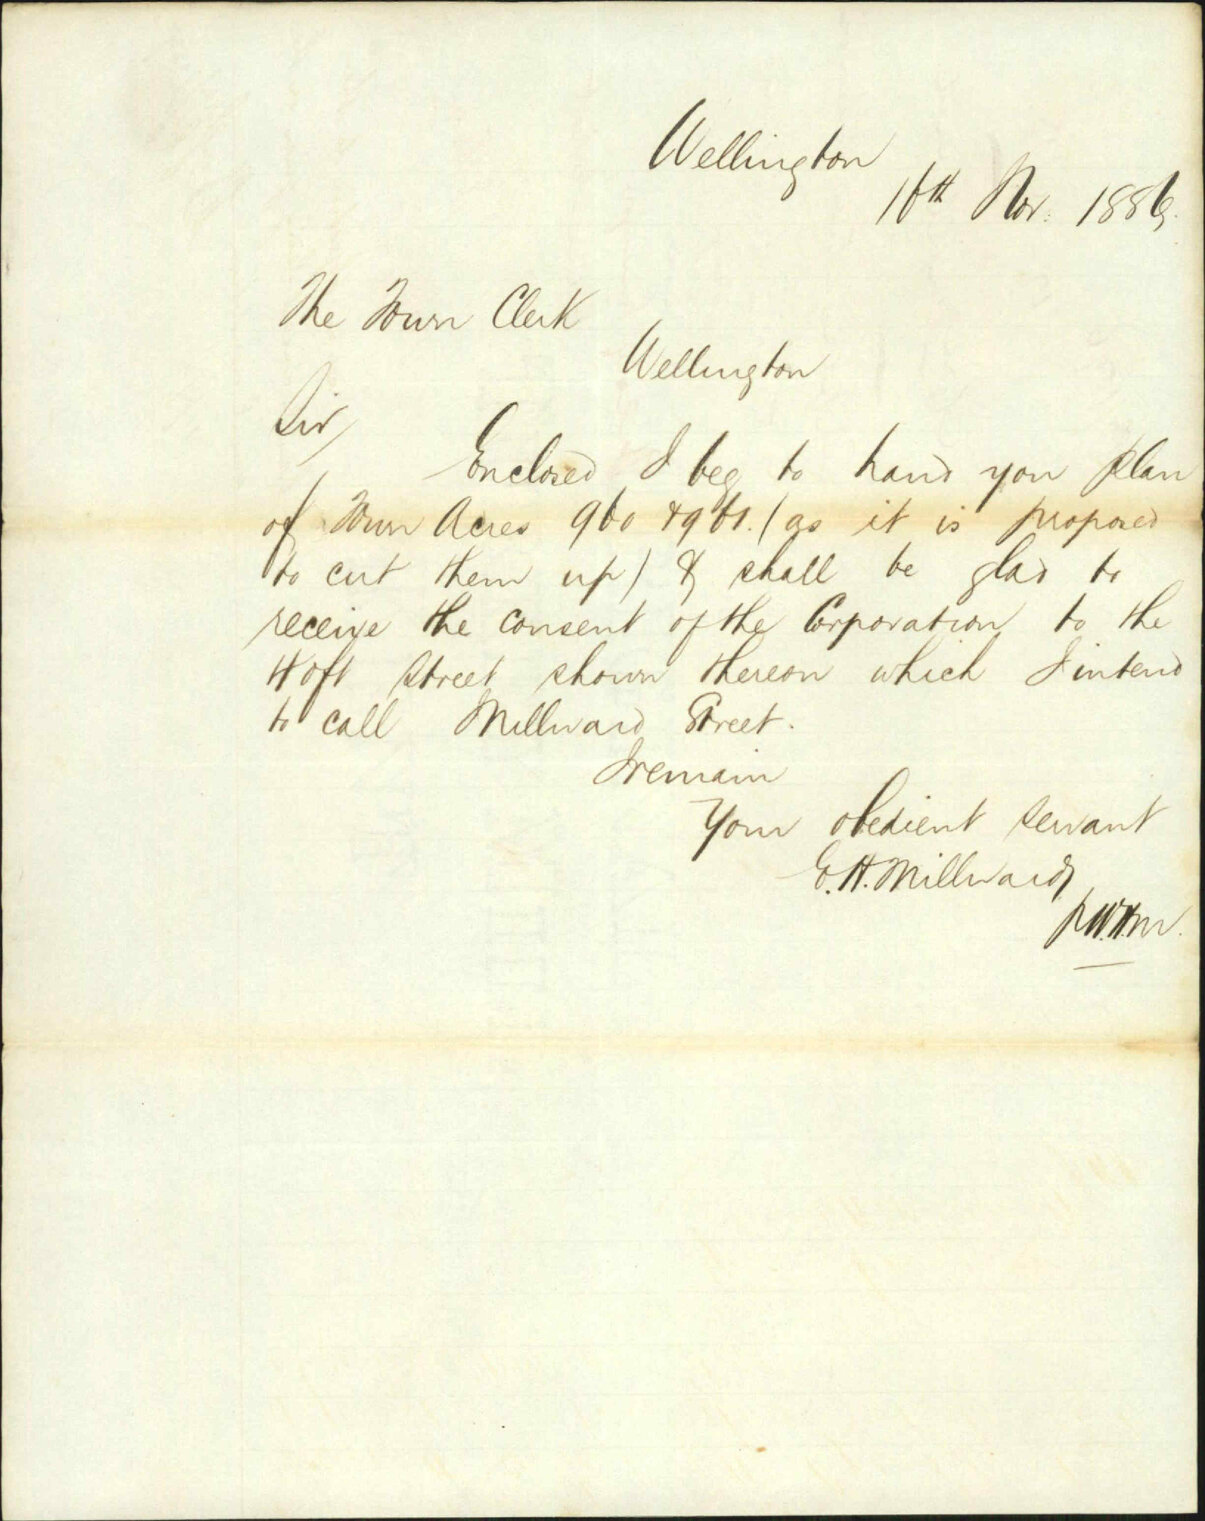 Wellington
16th Nov. 1886.
The Town Clerk
Wellington
Sir,
Enclosed I beg to hand you plan
of Town Acres 960 & 961. (as it is proposed
to cut them up) & shall be glad to
receive the consent of the Corporation to the
40ft street shown thereon which I intend
to call Millward Street.
I remain
Your obedient servant
E. H. Millward
p W.H.M.